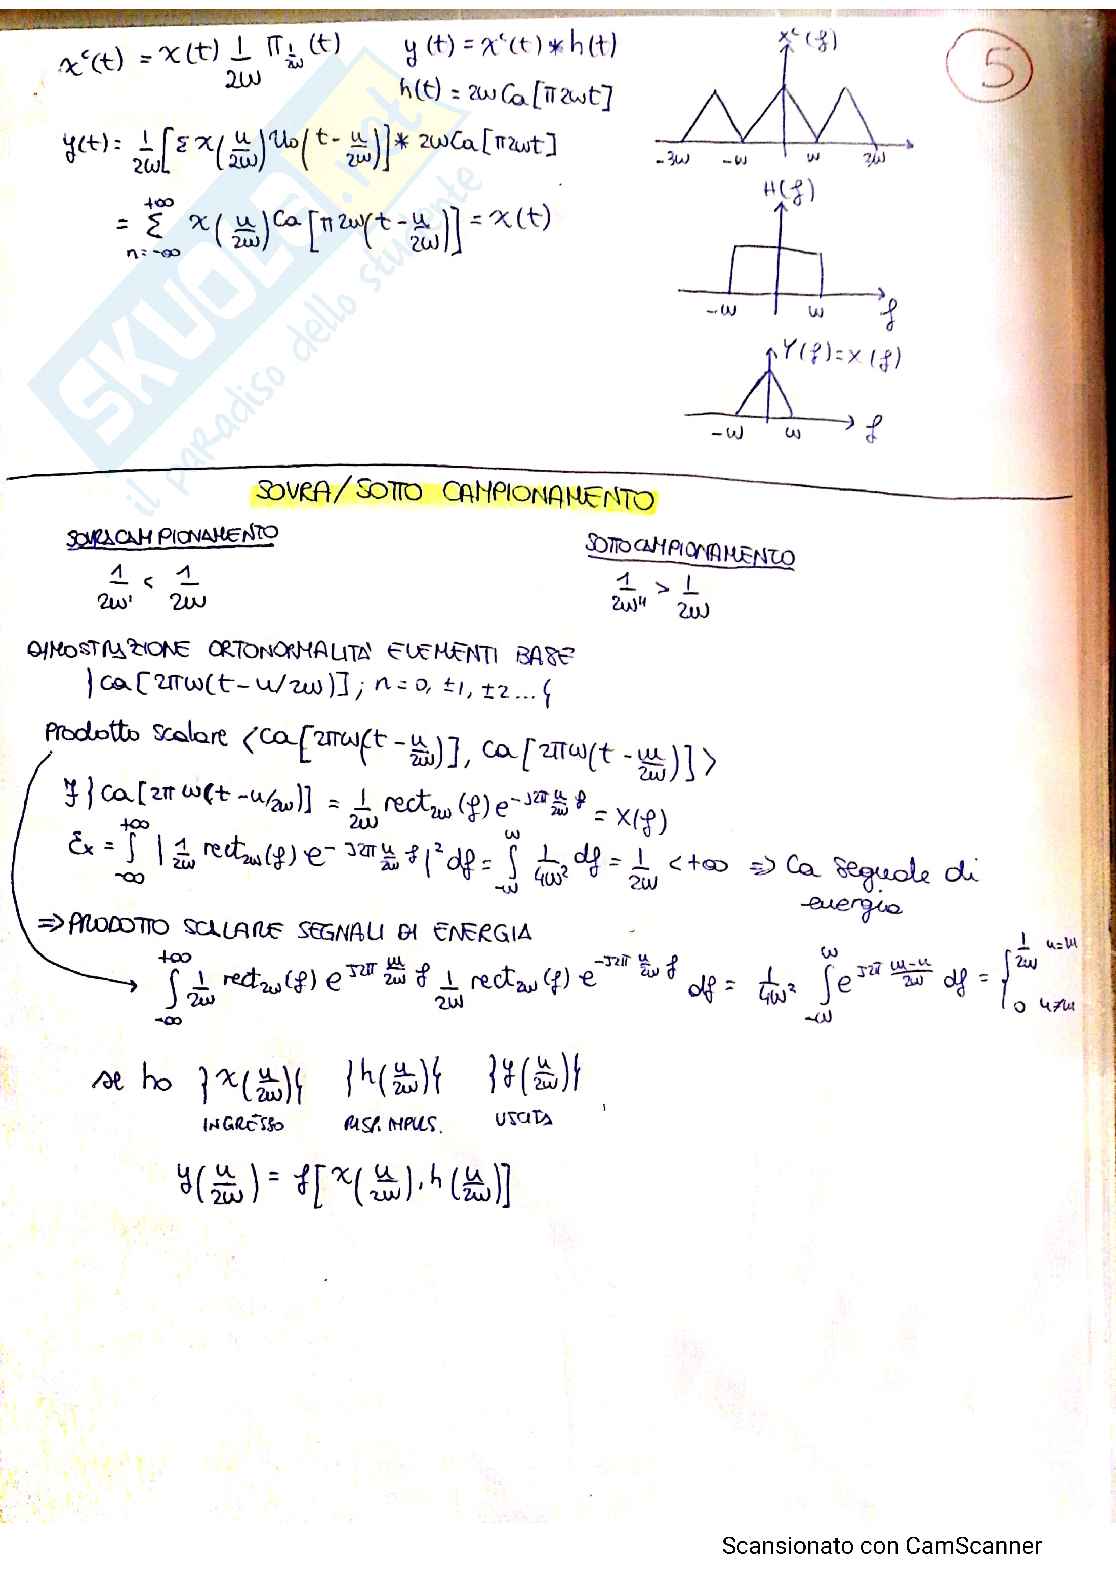 xᶜ(t) = x(t) 1/2w π_{1/2w}(t)
y(t) = xᶜ(t) * h(t)
h(t) = 2w Ca[π2wt]
y(t) = 1/2w [Σ x(n/2w) u₀(t - n/2w)] * 2w Ca[π2wt]
= Σ_{n=-∞}^{+∞} x(n/2w) Ca[π2w(t - n/2w)] = x(t)
5
xᶜ(f)
-3w -w w 3w
H(f)
-w w f
Y(f) = X(f)
-w w f
SKUOLA.net
il paradiso dello studente
SOVRA/SOTTO CAMPIONAMENTO
SOVRACAMPIONAMENTO
1/2w' < 1/2w
SOTTOCAMPIONAMENTO
1/2w" > 1/2w
DIMOSTRAZIONE ORTONORMALITA' ELEMENTI BASE
}Ca[2πw(t - n/2w)]; n = 0, ±1, ±2...{
Prodotto scalare <Ca[2πw(t - n/2w)], Ca[2πw(t - m/2w)]>
F}Ca[2πw(t - n/2w)] = 1/2w rect₂w(f) e^{-j2π n/2w f} = X(f)
Ɛx = ∫_{-∞}^{+∞} |1/2w rect₂w(f) e^{-j2π n/2w f}|² df = ∫_{-w}^{w} 1/4w² df = 1/2w < +∞ => Ca segnale di
energia
=> PRODOTTO SCALARE SEGNALI DI ENERGIA
∫_{-∞}^{+∞} 1/2w rect₂w(f) e^{j2π m/2w f} 1/2w rect₂w(f) e^{-j2π n/2w f} df = 1/4w² ∫_{-w}^{w} e^{j2π (m-n)/2w} df = { 1/2w n=m
0 n≠m
se ho }x(n/2w){ }h(n/2w){ }y(n/2w){
INGRESSO RISP. IMPULS. USCITA
y(n/2w) = f[x(n/2w), h(n/2w)]
Scansionato con CamScanner